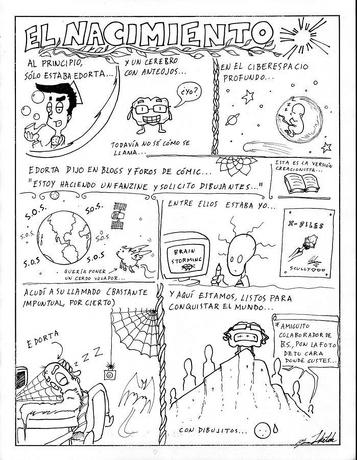 EL NACIMIENTO
POR
AL PRINCIPIO,
SÓLO ESTABA EDORTA...
Y UN CEREBRO
CON ANTEOJOS...
¿YO?
TODAVÍA NO SÉ CÓMO SE
LLAMA...
EN EL CIBERESPACIO
PROFUNDO...
EDORTA DIJO EN BLOGS Y FOROS DE CÓMIC...
"ESTOY HACIENDO UN FANZINE Y SOLICITO DIBUJANTES..."
ESTA ES LA VERSIÓN
CREACIONISTA...
S.O.S.
S.O.S.
S.O.S.
S.O.S.
S.O.S.
QUERÍA PONER
UN CERDO VOLADOR...
ENTRE ELLOS ESTABA YO...
BRAIN
STORMING
X-FILES
SCULLY
ACUDÍ A SU LLAMADO (BASTANTE
IMPUNTUAL, POR CIERTO)
EDORTA
ZZZ
Y AQUÍ ESTAMOS, LISTOS PARA
CONQUISTAR EL MUNDO...
*AMIGUITO
COLABORADOR DE
B.S., PON LA FOTO
DE TO CARA
DONDE GUSTES...
CON DIBUJITOS...